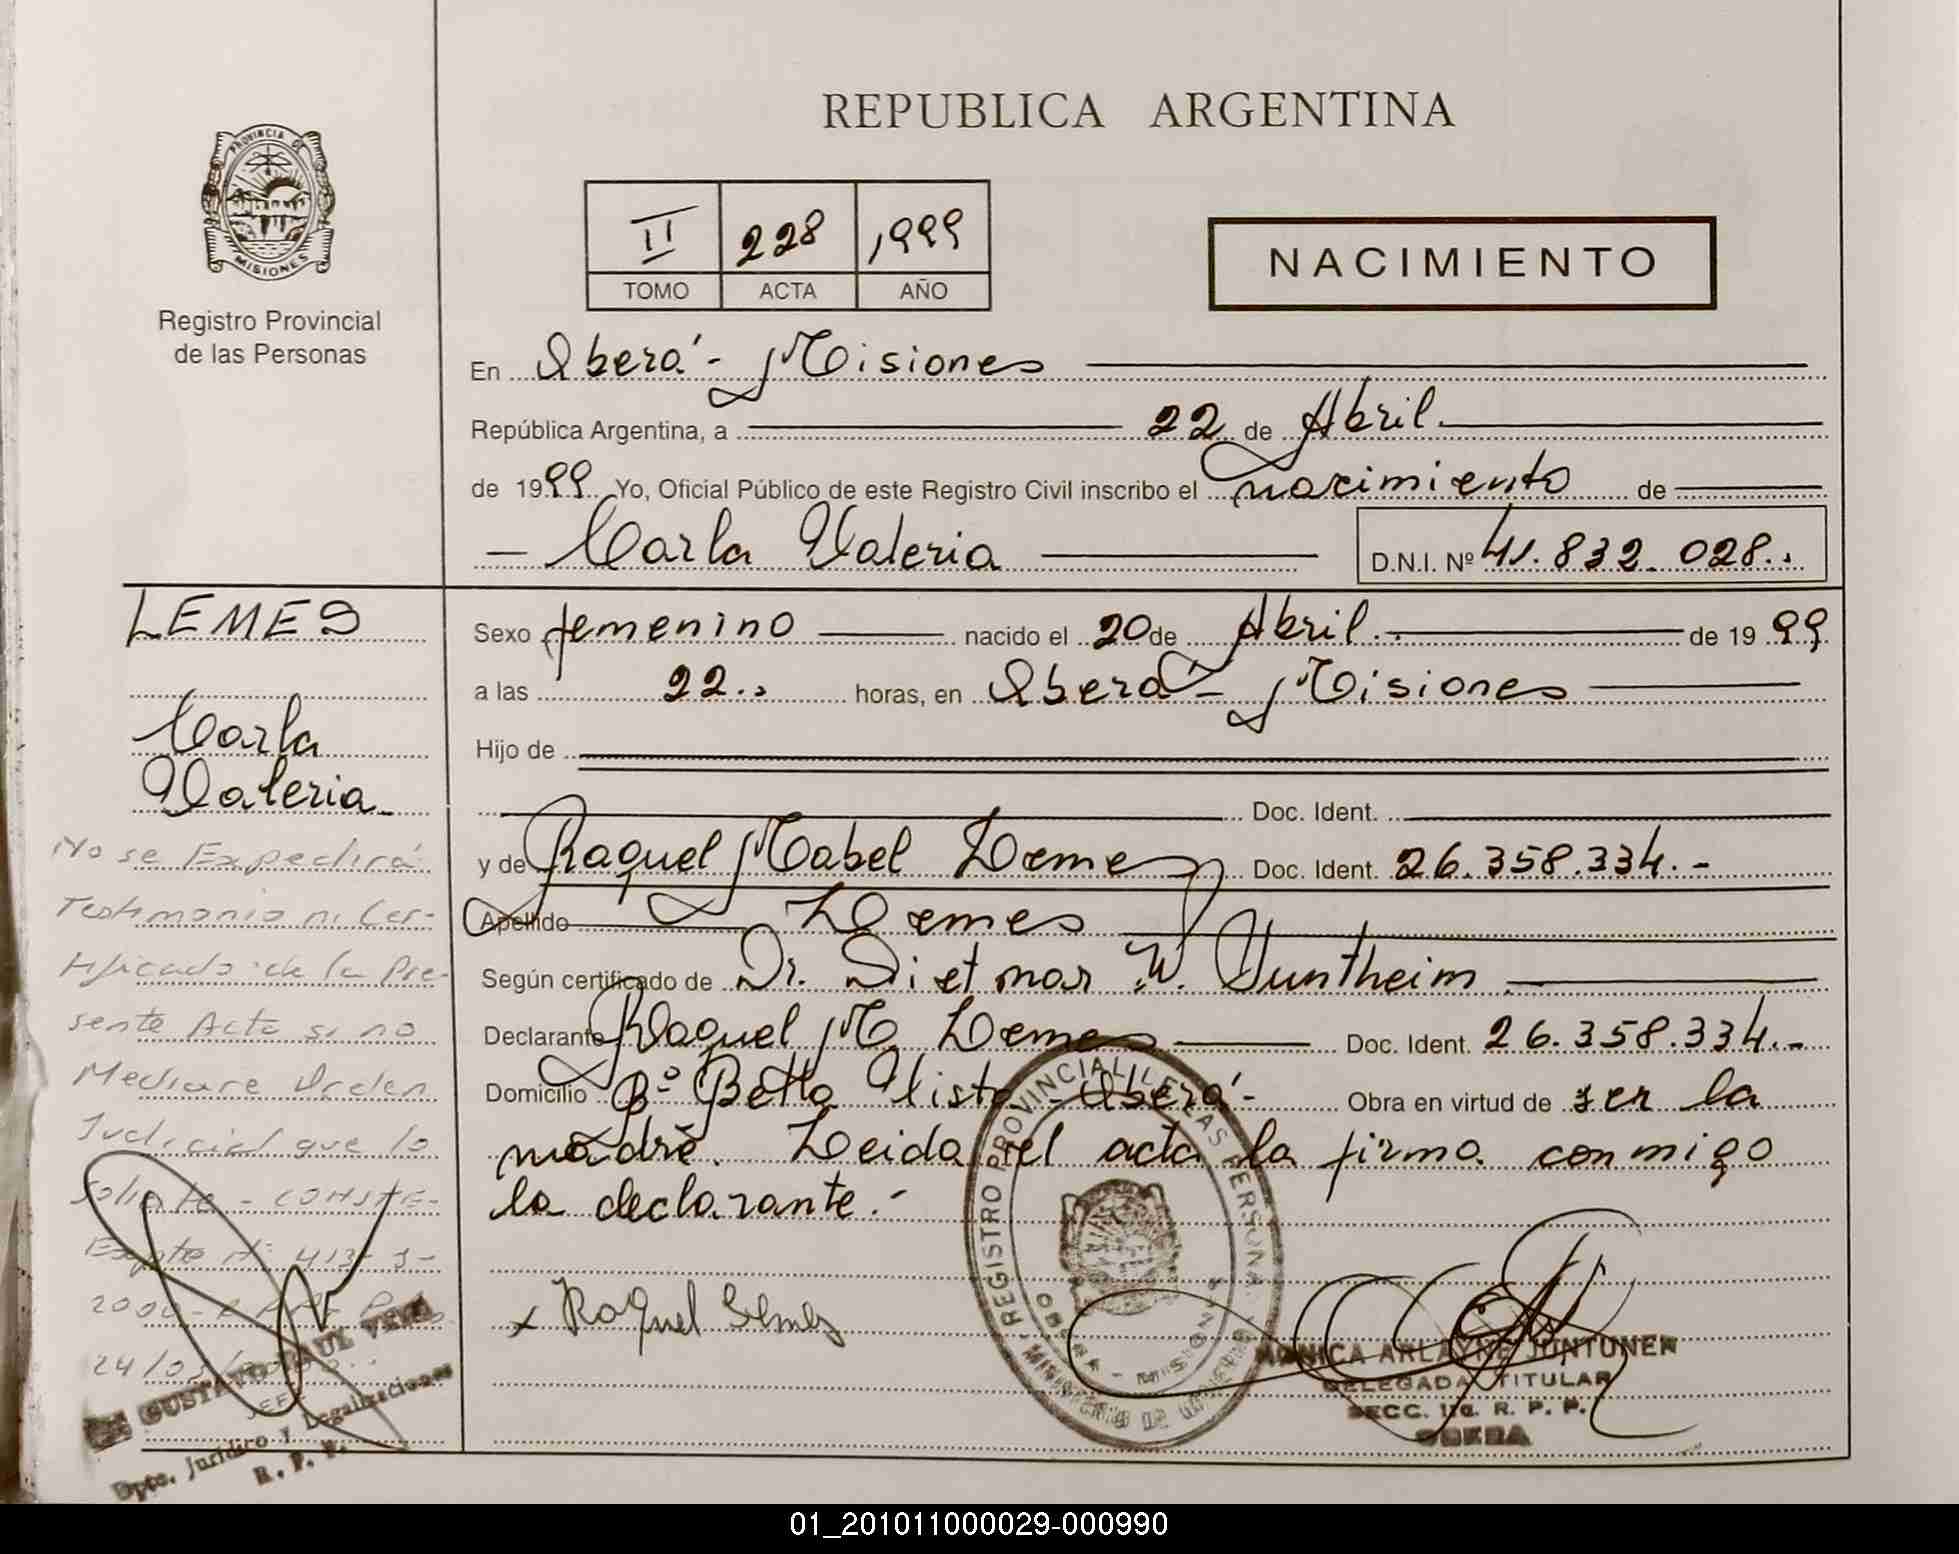 REPUBLICA ARGENTINA
PROVINCIA DE
MISIONES
Registro Provincial
de las Personas
II 228 1999
TOMO ACTA AÑO
NACIMIENTO
En Oberá - Misiones
República Argentina, a 22 de Abril
de 1999 Yo, Oficial Público de este Registro Civil inscribo el nacimiento de
Carla Valeria D.N.I. Nº 41.832.028..
LEMES
Carla
Valeria
No se Expedirá
Testimonio ni Cer-
tificado de la Pre-
sente Acta si no
Mediare Orden
Judicial que lo
solicite - CONSTE-
Expte Nº 413-J-
2000-
24/03/
GUSTAVO RAUL
JEFE
Dpto. Jurídico y Legalizaciones
R. P. P.
Sexo femenino nacido el 20 de Abril.. de 1999
a las 22.. horas, en Oberá - Misiones
Hijo de
Doc. Ident.
y de Raquel Mabel Lemes Doc. Ident. 26.358.334.-
Apellido Lemes
Según certificado de Dr. Dietmar W. Juntheim
Declarante Raquel M. Lemes Doc. Ident. 26.358.334.-
Domicilio Bº Bella Vista - Oberá - Obra en virtud de ser la
madre. Leida el acta la firma conmigo
la declarante.-
x Raquel Lemes
REGISTRO PROVINCIAL DE LAS PERSONAS
MINISTERIO DE GOBIERNO
OBERA - MISIONES
MONICA ARLAYNE JUNTUNEN
DELEGADA TITULAR
SECC. 1ra. R. P. P.
OBERA
01_201011000029-000990